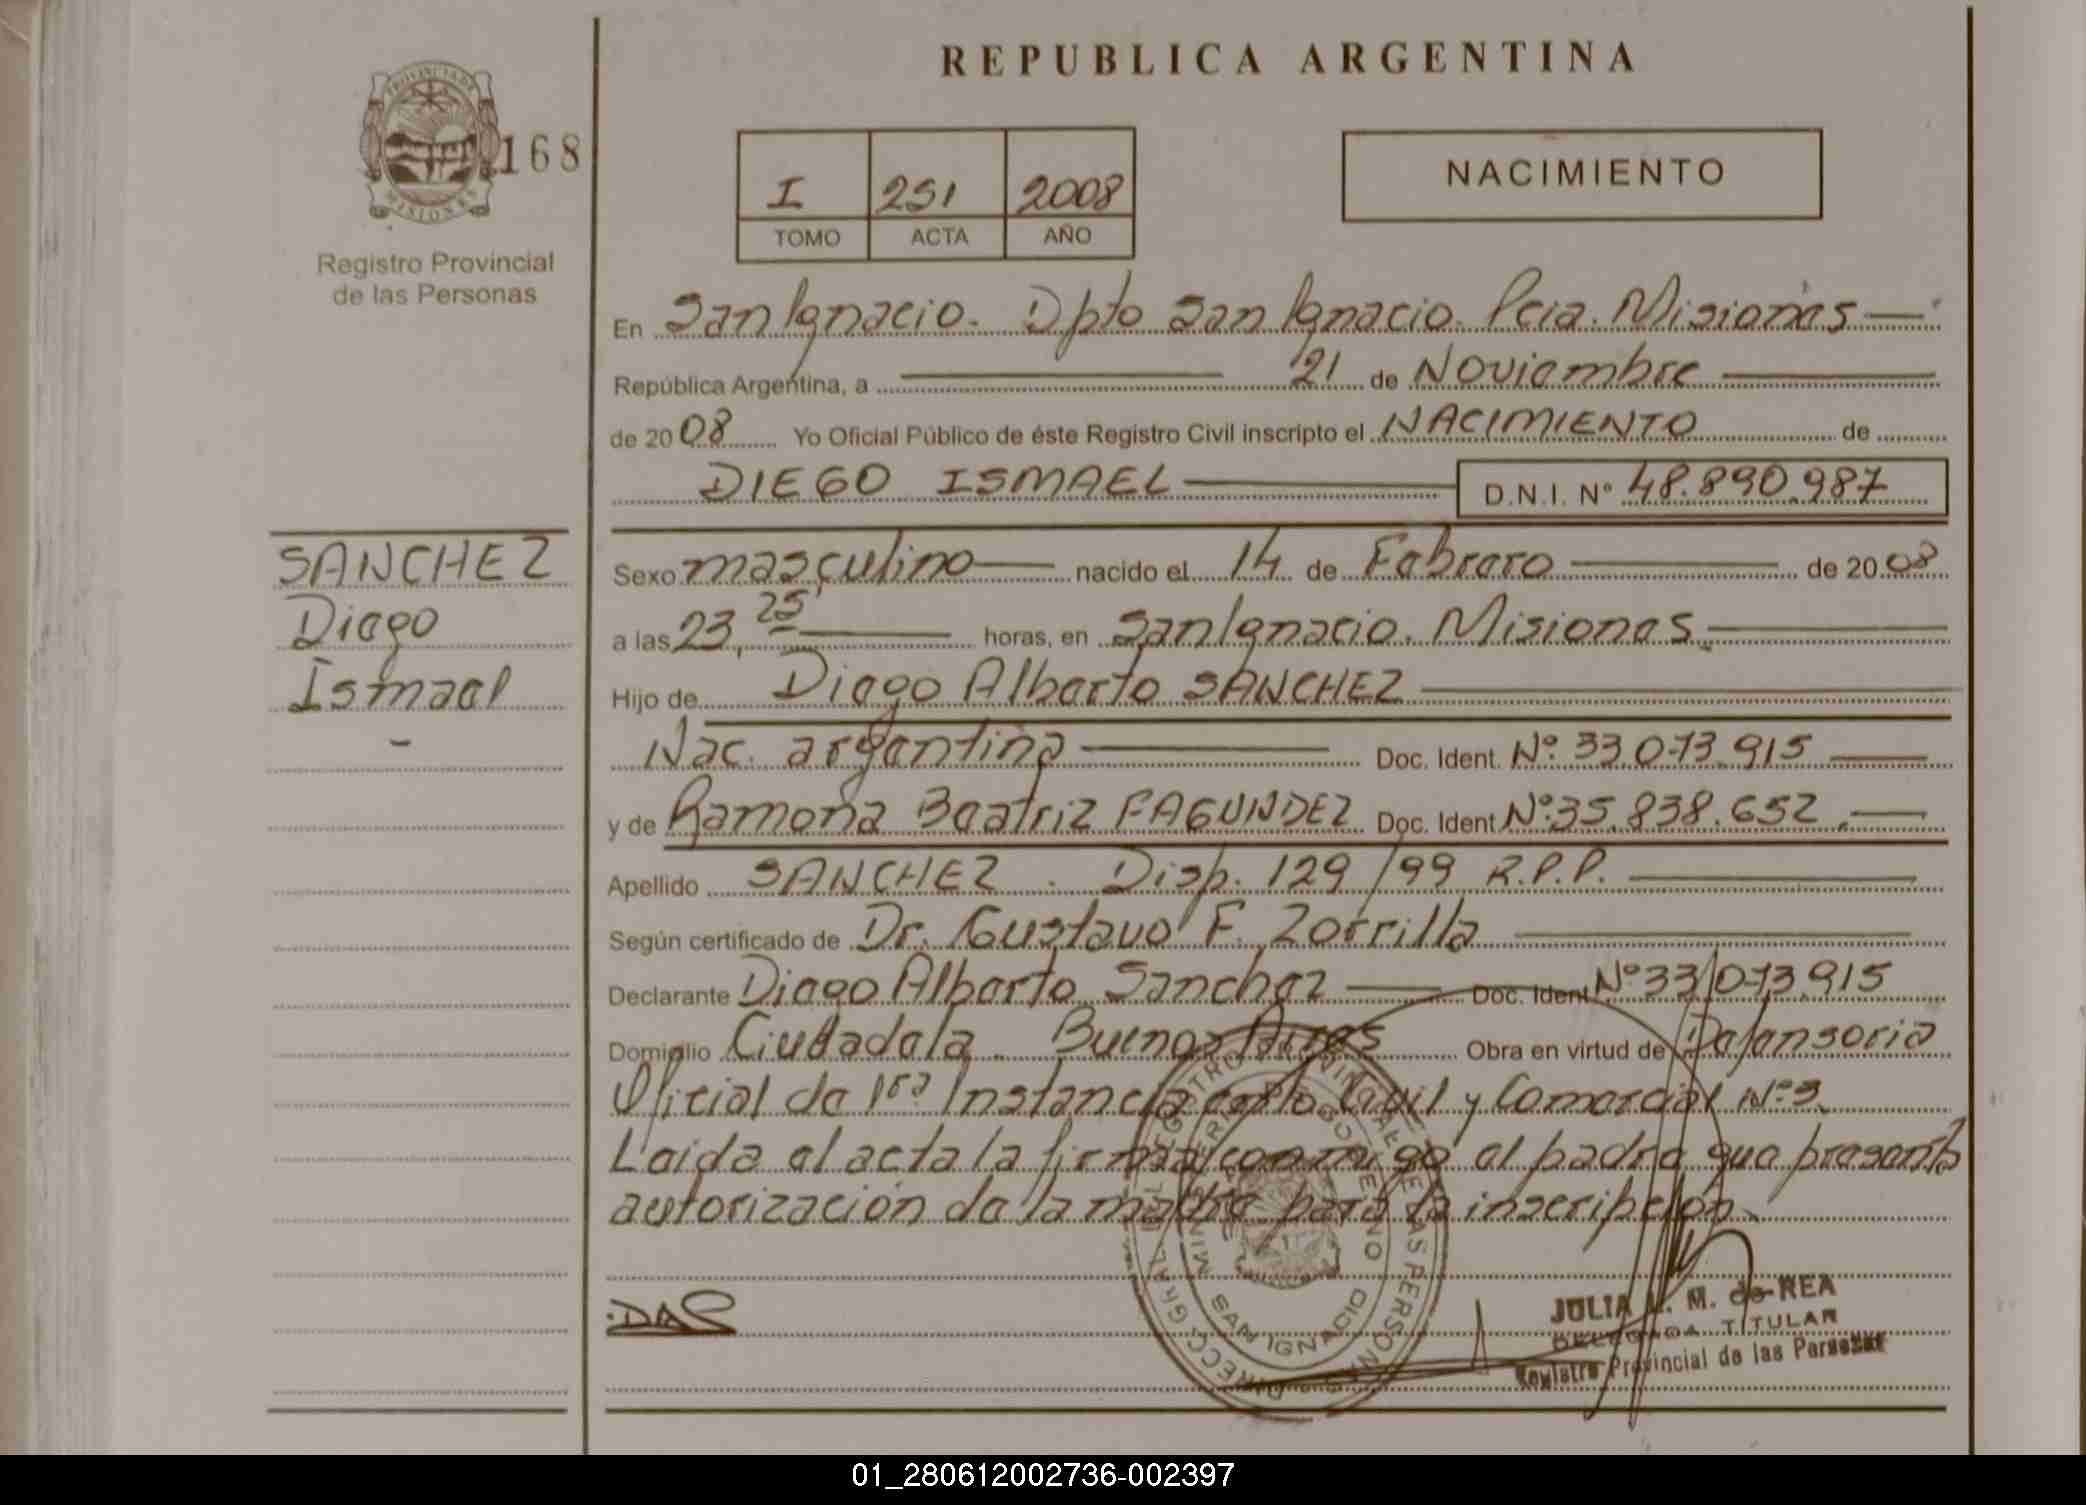 REPUBLICA ARGENTINA
PROVINCIA DE
MISIONES
168
Registro Provincial
de las Personas
I 251 2008
TOMO ACTA AÑO
NACIMIENTO
En San Ignacio. Dpto San Ignacio. Pcia. Misiones
República Argentina, a 21 de Noviembre
de 2008 Yo Oficial Público de éste Registro Civil inscripto el NACIMIENTO de
DIEGO ISMAEL D.N.I. N° 48.890.987
SANCHEZ
Diego
Ismael
Sexo masculino nacido el 14 de Febrero de 2008
a las 23,25 horas, en San Ignacio. Misiones
Hijo de Diego Alberto SANCHEZ
Nac. argentina Doc. Ident. N°. 33.073.915
y de Ramona Beatriz FAGUNDEZ Doc. Ident N°. 35.838.652.
Apellido SANCHEZ. Disp. 129/99 R.P.P.
Según certificado de Dr. Gustavo F. Zorrilla
Declarante Diego Alberto Sanchez Doc. Ident N° 33.073.915
Domicilio Ciudadela. Buenos Aires Obra en virtud de Defensoria
Oficial de 1ra Instancia en lo Civil y Comercial N°3.
Leida el acta la firma conmigo el padre que presenta
autorización de la madre para la inscripción.
DAS
DIRECC. GRAL. DEL REGISTRO PROVINCIAL DE LAS PERSONAS
MINISTERIO DE GOBIERNO
SAN IGNACIO
JULIA M. de REA
DELEGADA TITULAR
Registro Provincial de las Personas
01_280612002736-002397